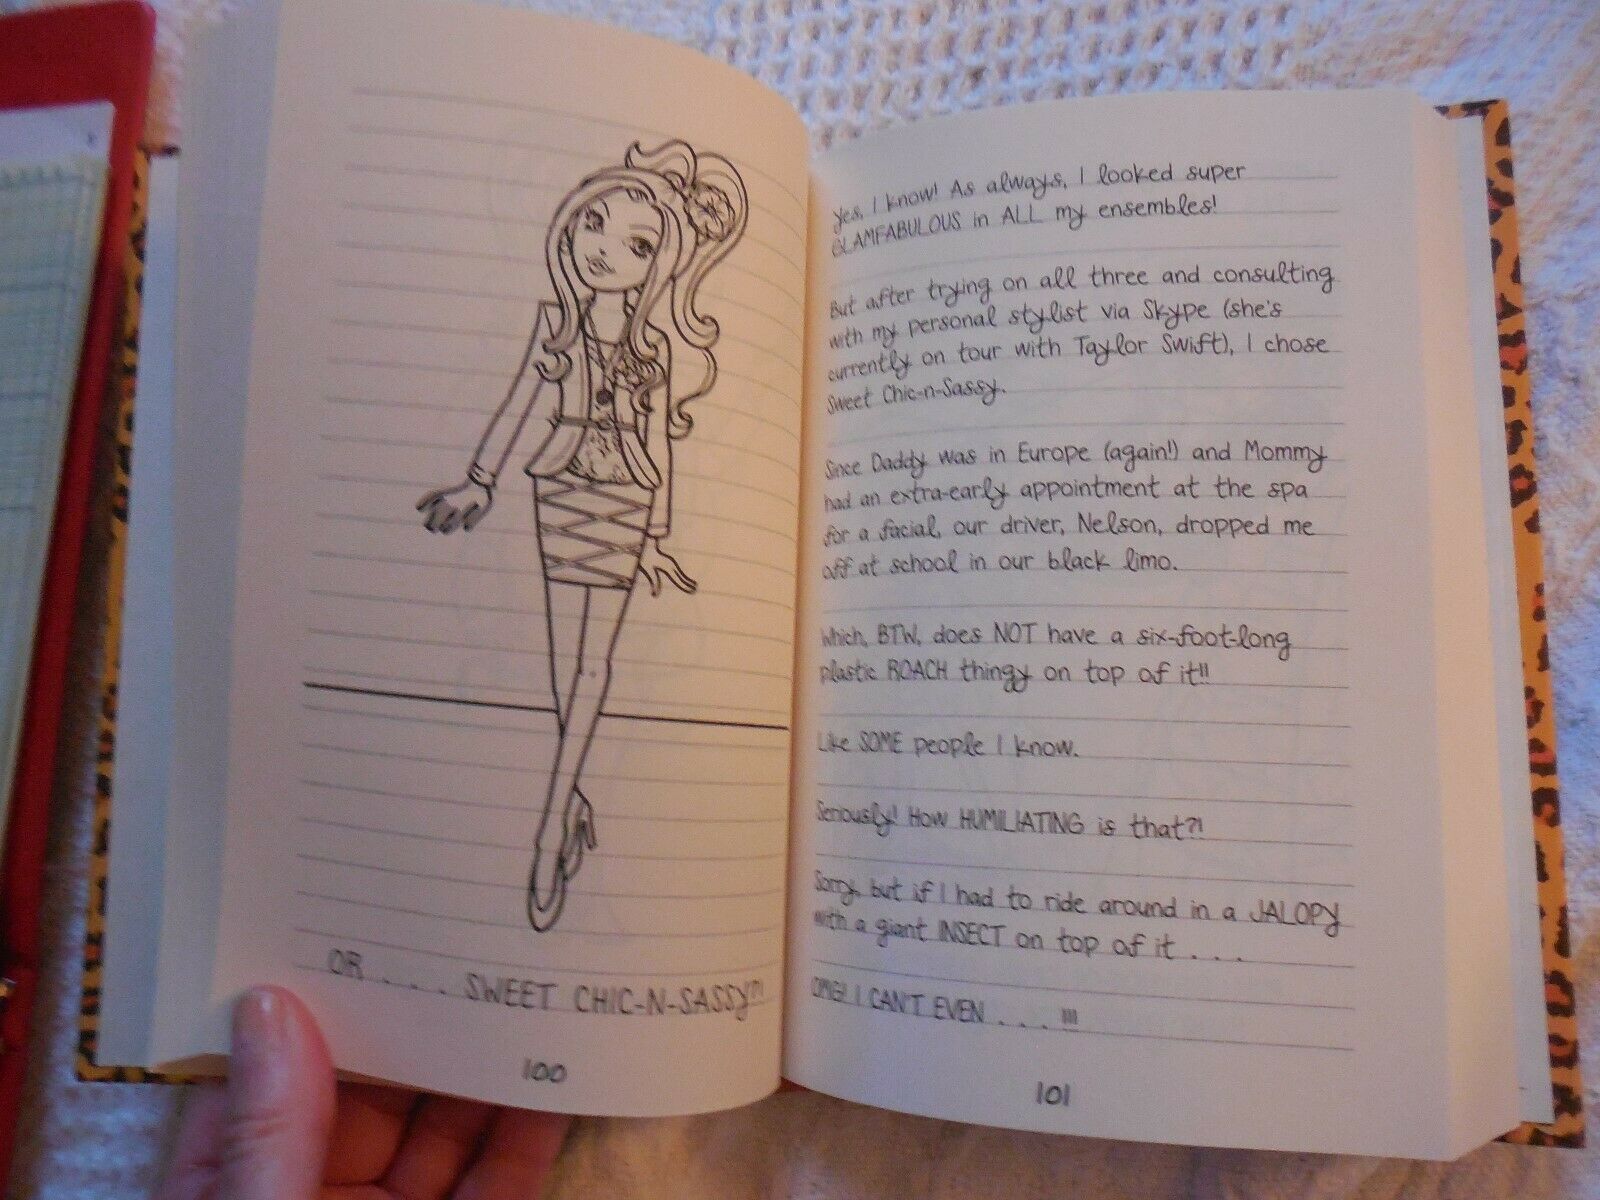 OR . . . SWEET CHIC-N-SASSY?!
100
Yes, I know! As always, I looked super
GLAMFABULOUS in ALL my ensembles!
But after trying on all three and consulting
with my personal stylist via Skype (she's
currently on tour with Taylor Swift), I chose
Sweet Chic-n-Sassy.
Since Daddy was in Europe (again!) and Mommy
had an extra-early appointment at the spa
for a facial, our driver, Nelson, dropped me
off at school in our black limo.
Which, BTW, does NOT have a six-foot-long
plastic ROACH thingy on top of it!!
Like SOME people I know.
Seriously! How HUMILIATING is that?!
Sorry, but if I had to ride around in a JALOPY
with a giant INSECT on top of it . . .
OMG! I CAN'T EVEN . . . !!!
101